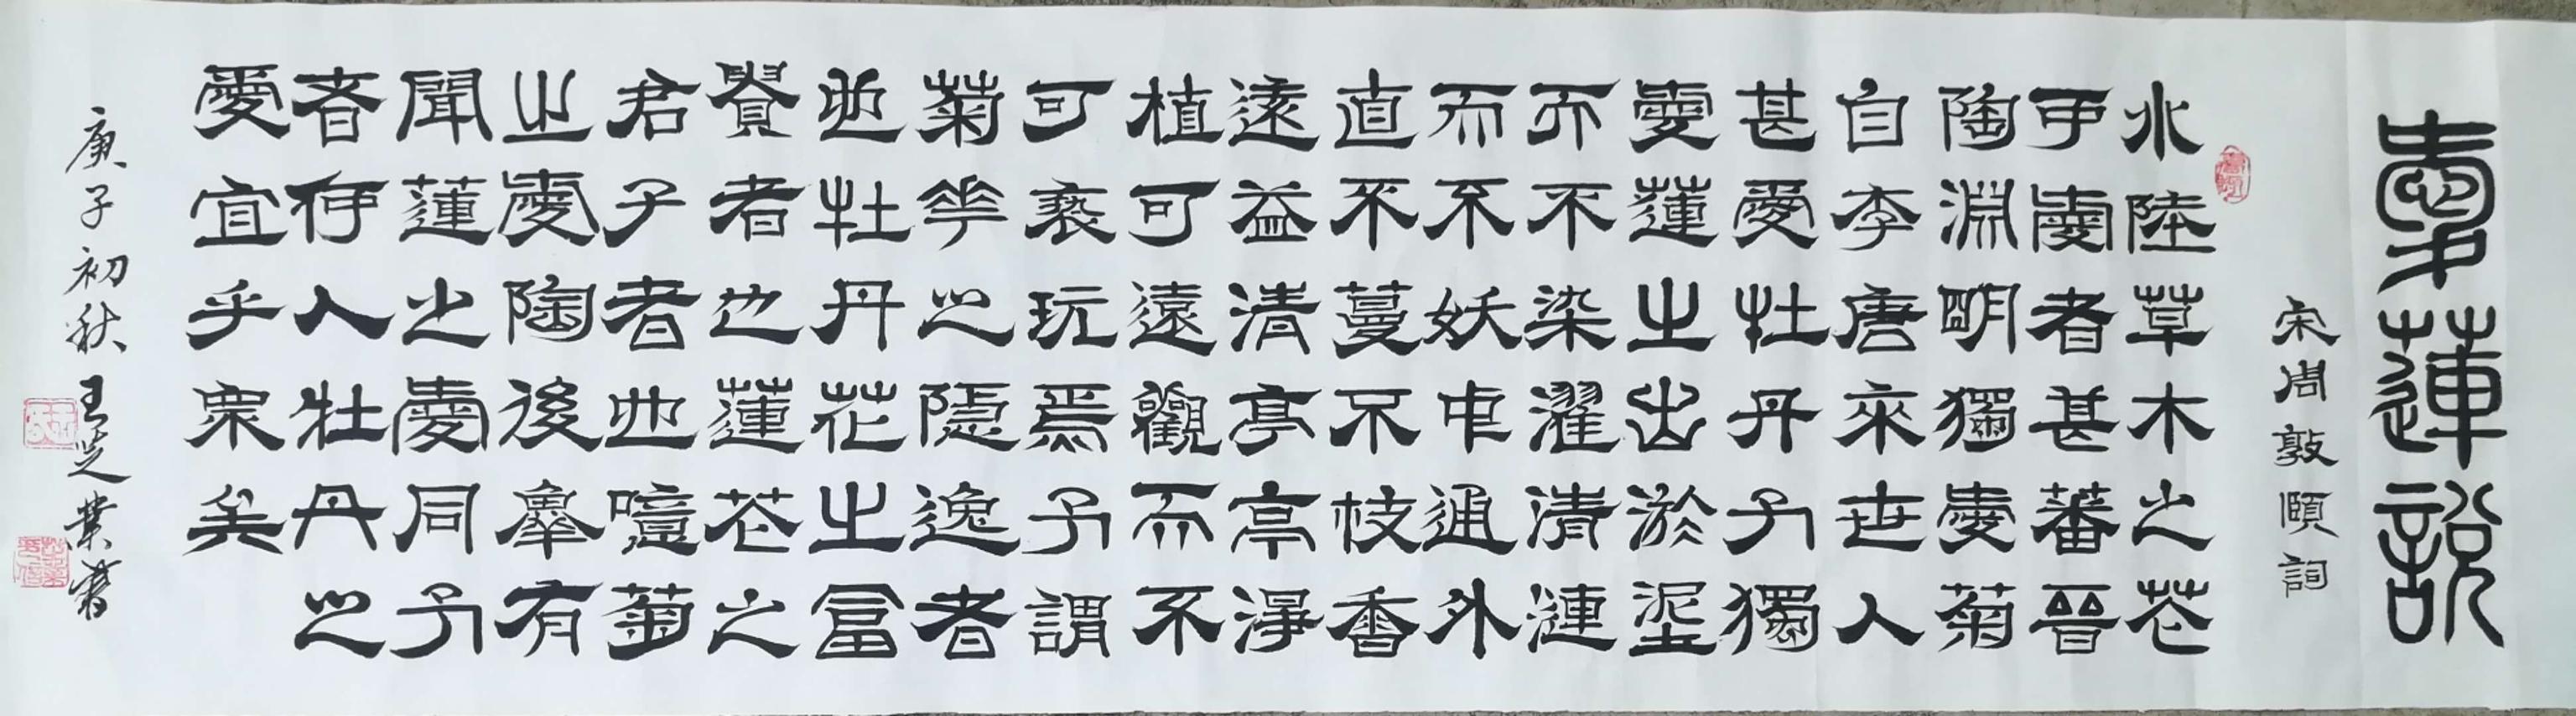 愛蓮說
宋周敦頤詞
水陸草木之花
可愛者甚蕃晉
陶淵明獨愛菊
自李唐來世人
甚愛牡丹予獨
愛蓮之出淤埿
而不染濯清漣
而不妖中通外
直不蔓不枝香
遠益清亭亭淨
植可遠觀而不
可褻玩焉予謂
菊華之隱逸者
也牡丹花之富
貴者也蓮花之
君子者也噫菊
之愛陶後鮮有
聞蓮之愛同予
者何人牡丹之
愛宜乎眾矣
庚子初秋王芝業書